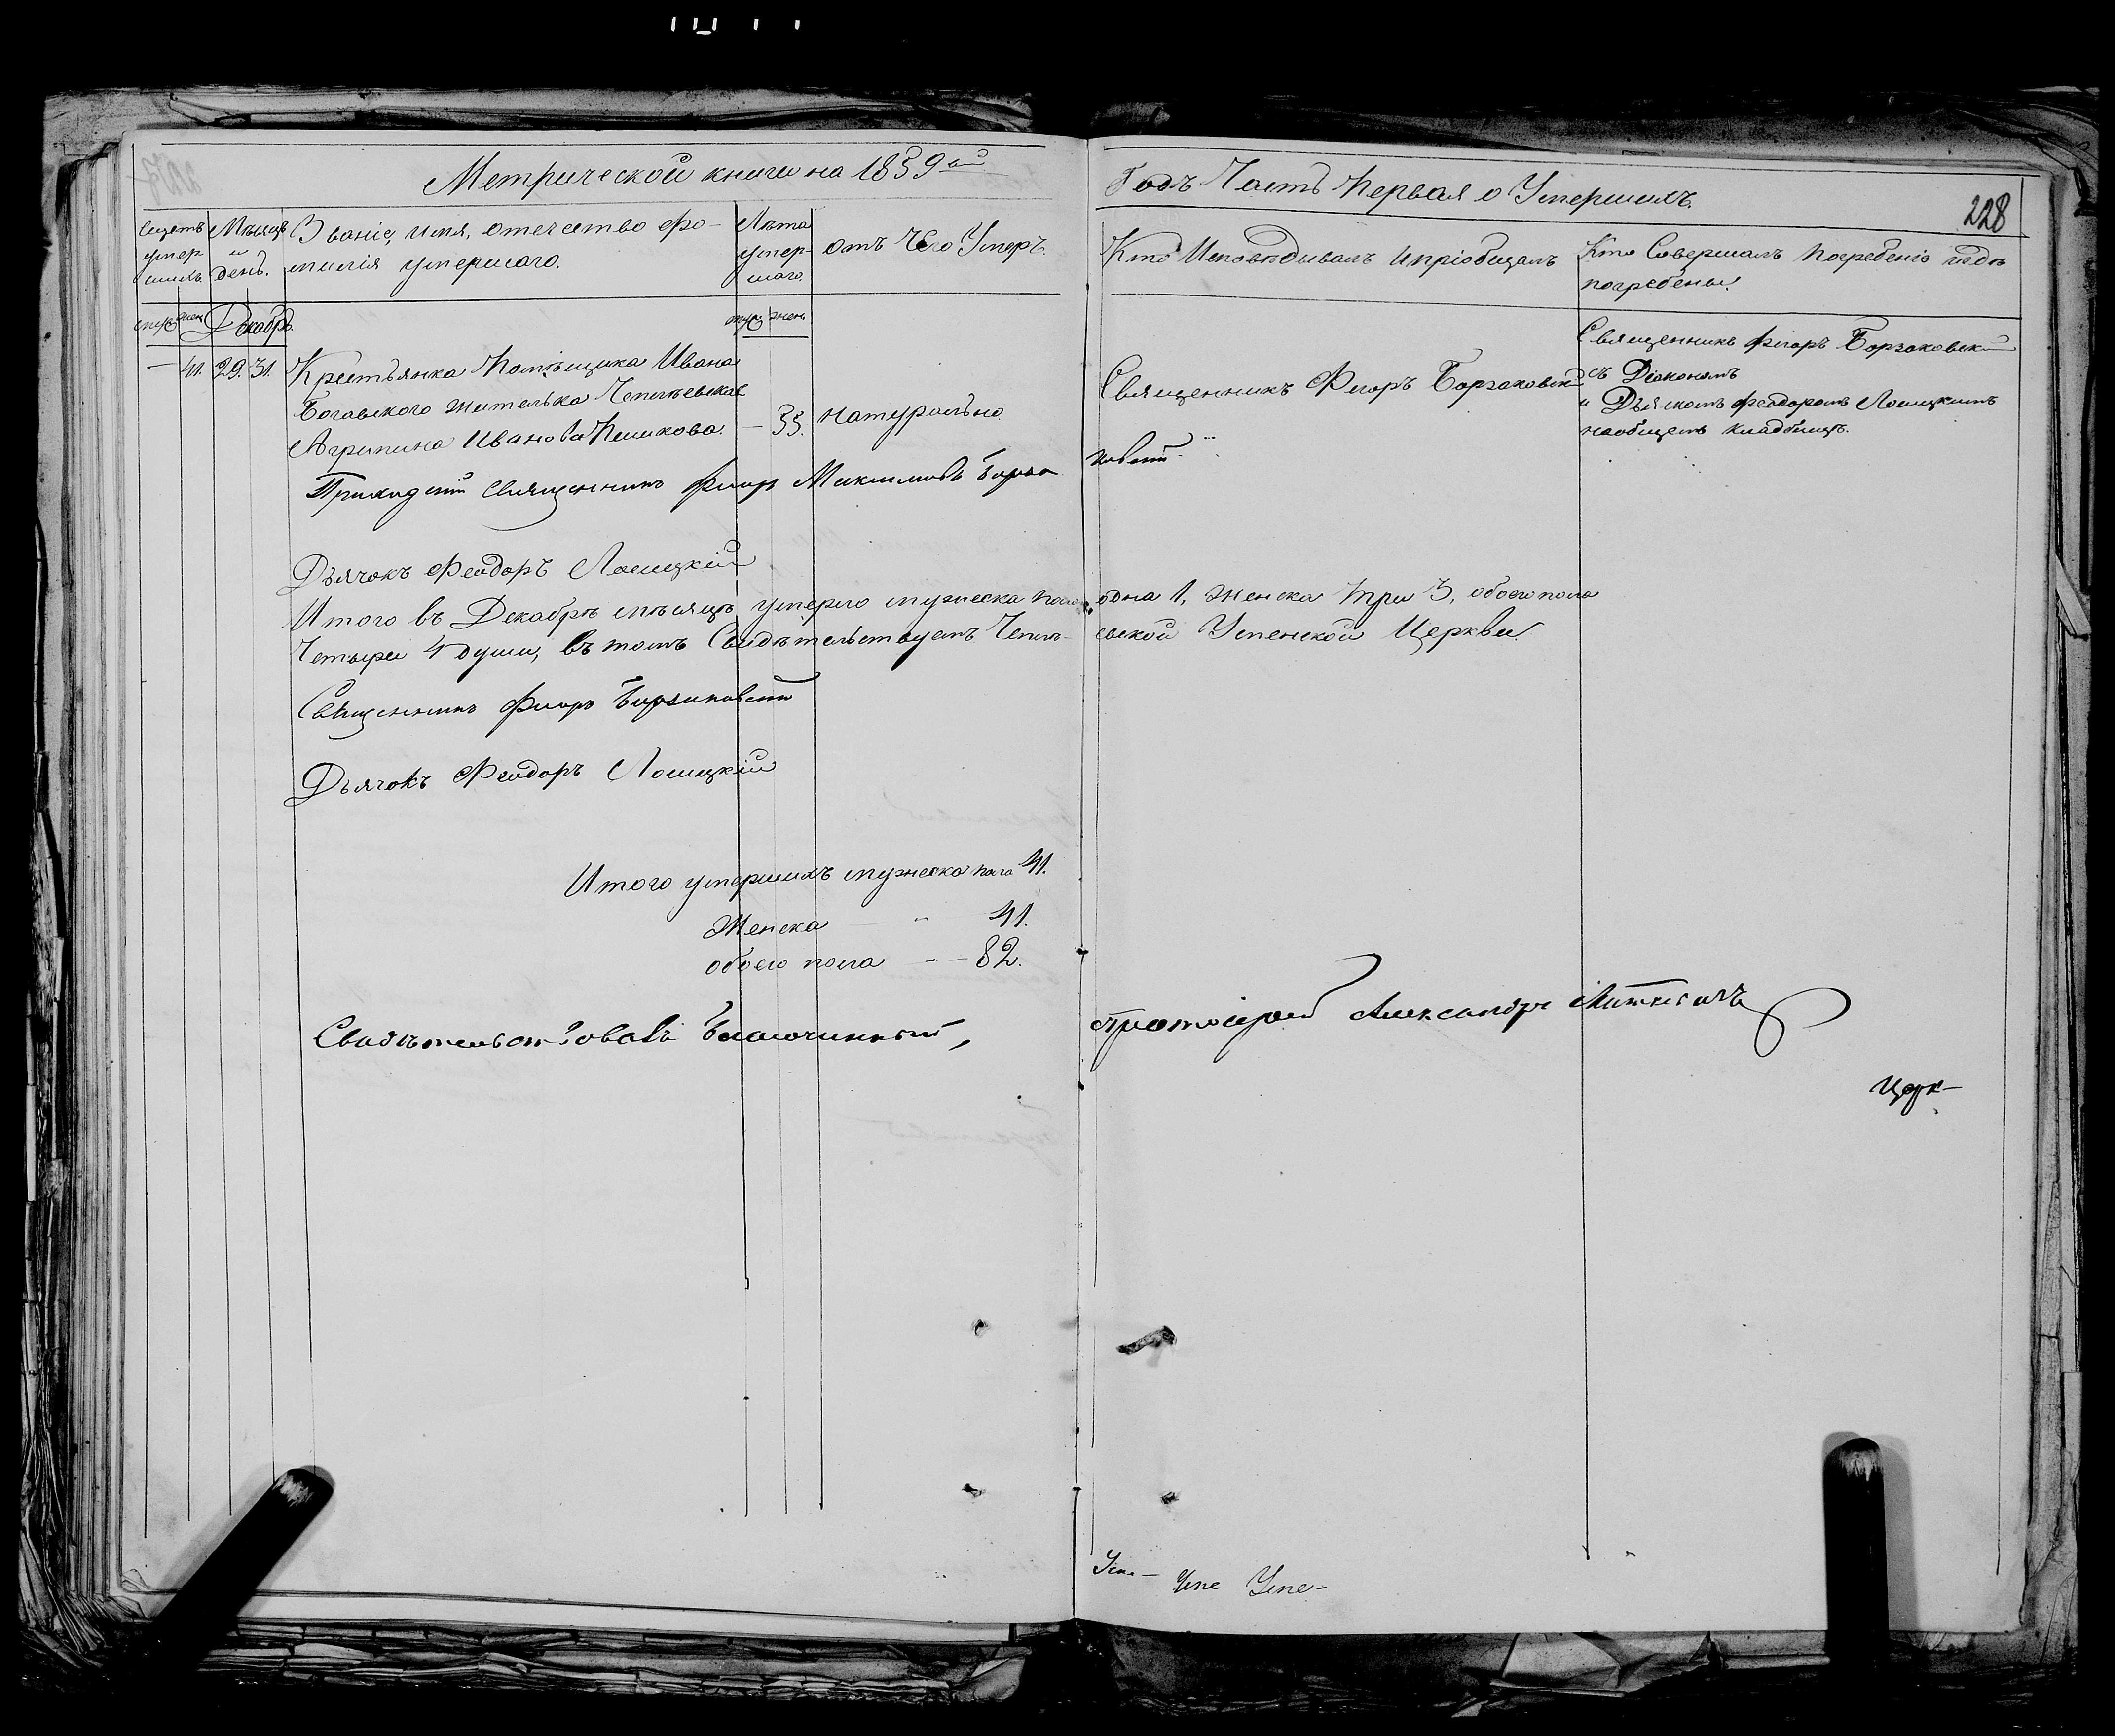 Метрической книги на 1859ый
Годъ Часть Первая о Умершихъ.
228
Щетъ умер шихъ
Мѣсяцъ и день.
Званіе, имя, отечество фо-
милія умершаго.
Лѣта умер- шаго.
отъ Чего Умеръ.
Кто Исповѣдывалъ и пріобщалъ
Кто Совершалъ погребеніе и гдѣ
погребены.
муж жен Декабрь. муж жен
— 41. 29. 31. Крестьянка Помѣщика Ивана
Богавского жителька
Агрипина Иванова Пешкова. — 33. Натурально
Священникъ Флоръ Борзаковскій
Священникъ Флоръ Борзаковскій
съ Діакономъ
и Дьячкомъ Феодоромъ Лосицкимъ
на общемъ кладбищѣ.
Приходскій Священникъ Флоръ Максимовъ Борза
ковскій
Дьячокъ Феодоръ Лосицкій
Итого въ Декабрѣ мѣсяцѣ умерло мужеска пола одна 1, женска три 3, обоего пола
Четыри 4 души, въ томъ Свидѣтельствуемъ Чепи- евской Успенской Церкви.
Священникъ Флоръ Борзаковскій
Дьячокъ Феодоръ Лосицкій
Итого умершихъ мужеска пола 41.
Женска — " 41.
обоего пола - - 82.
Свидѣтельствовалъ Благочинный, Протоіерей Александръ
Церк-
Успе- Успе Успе-